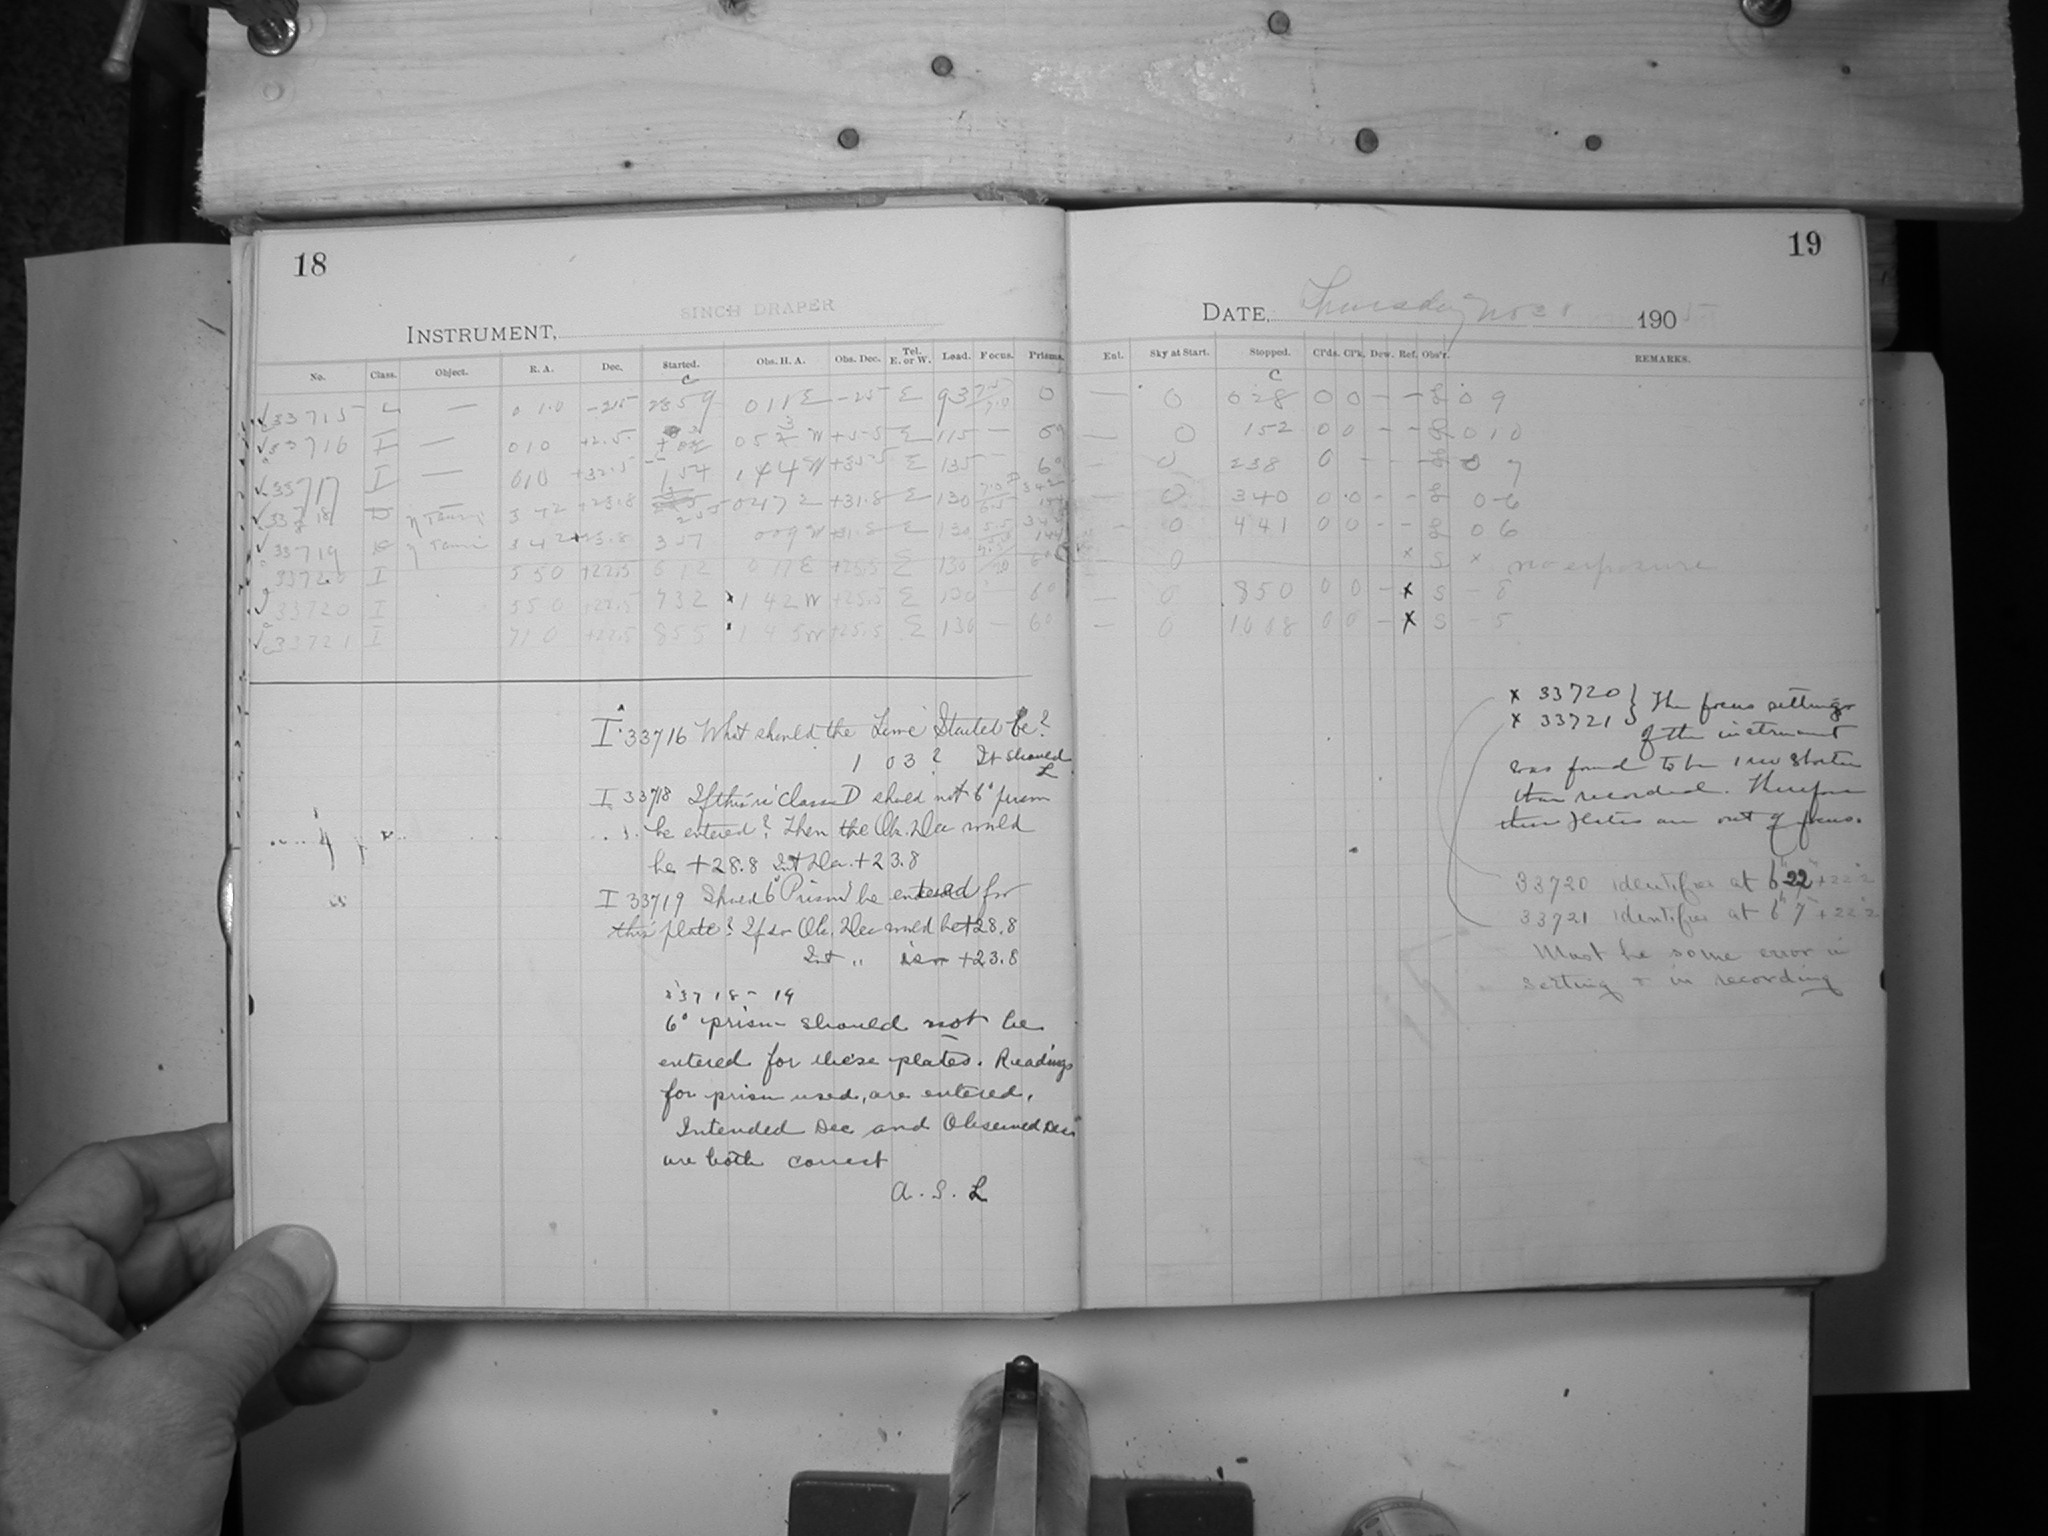 18
8INCH DRAPER
INSTRUMENT,
No. Class. Object. R. A. Dec. Started. Obs. H. A. Obs. Dec. Tel. E. or W. Load. Focus. Prisms.
33715 — 0 10 -25 23 59 0 11 E -25 E 93 0
33716 I — 0 10 115
33717 I — 0 10 +32.5 1 54 1 44 W E 135 6°
33718 D η Tauri 3 42 +23.8 2 55 0 47 E +31.8 E 130
33719 η Tauri 3 42 +23.8 3 57 0 09 W +31.8 E 130
33720 I 5 50 +22.5 6 12 0 11 E +25.5 E 130
33720 I 5 50 +22.5 7 32 x 1 42 W +25.5 E 130 — 6°
33721 I 7 10 +22.5 8 55 1 45 W +25.5 E 130 — 6°
I 33716 What should the Time Started be?
1 03? It should
L
I 33718 If this is Class D should not 6° prism
be entered? Then the Ob. Dec would
be +28.8 Int Dec. +23.8
I 33719 Should 6° Prism be entered for
this plate? If so Ob. Dec would be +28.8
Int " is +23.8
33718-19
6° prism should not be
entered for these plates. Readings
for prism used, are entered.
Intended Dec and Observed Dec
are both correct
A. S. L
19
DATE, Thursday 190
Enl. Sky at Start. Stopped. Cl'ds. Cl'k. Dew. Ref. Obs'r. REMARKS.
— 0 0 28 0 0 - - L 0 9
— 0 1 52 0 0 - - L 0 10
— 0 2 38 0 - - - L 0 7
— 0 3 40 0 0 - - L 0 6
- 0 4 41 0 0 - - L 0 6
— 0 x S x no exposure
— 0 8 50 0 0 - x S
— 0 10 08 0 0 - x S - 5
x 33720 } The focus setting
x 33721 } of the instrument
was found to be 1 shorter
than recorded. Therefore
these plates are out of focus.
33720 identifies at 6h 22m +22°2
33721 identifies at 6h 7m +22°2
Must be some error in
setting & in recording